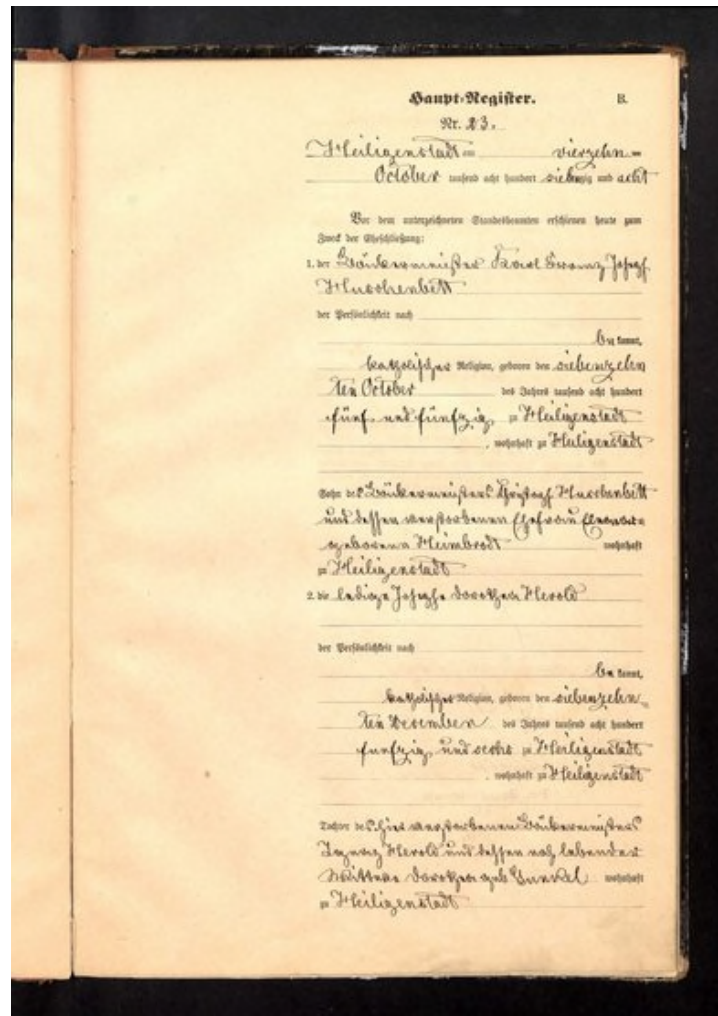 Haupt-Register.
B.
Nr. 23.
Heiligenstadt am vierzehn
October tausend acht hundert siebenzig und acht
Vor dem unterzeichneten Standesbeamten erschienen heute zum
Zweck der Eheschließung:
1. der Bäckermeister Karl Franz Joseph
Huschenbett
der Persönlichkeit nach
be kannt,
katholischer Religion, geboren den siebenzehn
ten October des Jahres tausend acht hundert
fünf und fünfzig zu Heiligenstadt
, wohnhaft zu Heiligenstadt
Sohn des Bäckermeisters Christoph Huschenbett
und dessen verstorbenen Ehefrau
geborene Heimbrodt wohnhaft
zu Heiligenstadt
2. die ledige Josepha Dorothea Herold
der Persönlichkeit nach
be kannt,
katholischer Religion, geboren den siebenzehn
ten December des Jahres tausend acht hundert
funfzig und sechs zu Heiligenstadt
, wohnhaft zu Heiligenstadt
Tochter des hier verstorbenen Bäckermeisters
Herold und dessen noch lebender
Wittwe Dorothea geb Gunkel wohnhaft
zu Heiligenstadt